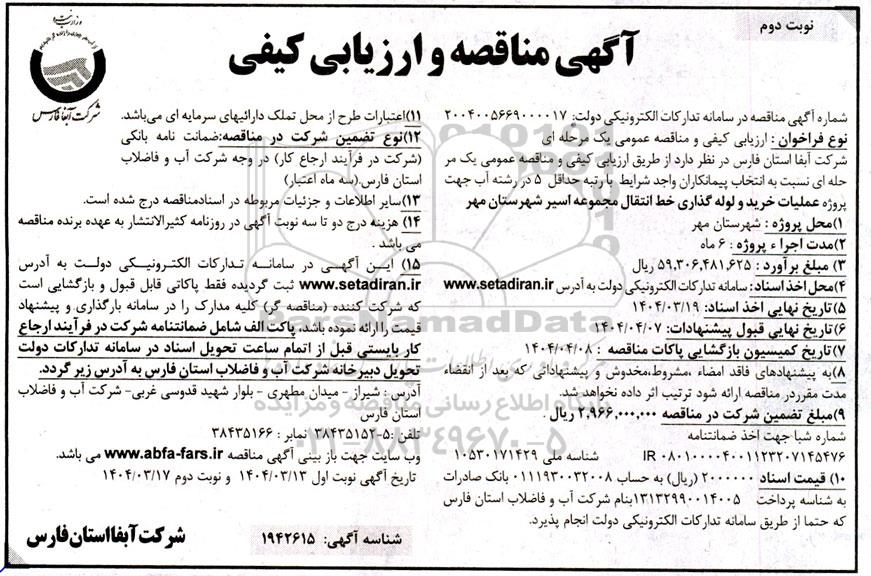 نوبت دوم
آگهی مناقصه و ارزیابی کیفی
شرکت آبفا فارس
شماره آگهی مناقصه در سامانه تدارکات الکترونیکی دولت: ۲۰۰۴۰۰۵۶۶۹۰۰۰۰۱۷
نوع فراخوان : ارزیابی کیفی و مناقصه عمومی یک مرحله ای
شرکت آبفا استان فارس در نظر دارد از طریق ارزیابی کیفی و مناقصه عمومی یک مر
حله ای نسبت به انتخاب پیمانکاران واجد شرایط با رتبه حداقل ۵ در رشته آب جهت
پروژه عملیات خرید و لوله گذاری خط انتقال مجموعه اسیر شهرستان مهر
۱)محل پروژه : شهرستان مهر
۲)مدت اجرا ء پروژه : ۶ ماه
۳) مبلغ برآورد : ۵۹,۳۰۶,۴۸۱,۶۲۵ ریال
۴)محل اخذ اسناد: سامانه تدارکات الکترونیکی دولت به آدرس www.setadiran.ir
۵)تاریخ نهایی اخذ اسناد: ۱۴۰۴/۰۳/۱۹
۶)تاریخ نهایی قبول پیشنهادات: ۱۴۰۴/۰۴/۰۷
۷)تاریخ کمیسیون بازگشایی پاکات مناقصه : ۱۴۰۴/۰۴/۰۸
۸)به پیشنهادهای فاقد امضاء ،مشروط،مخدوش و پیشنهاداتی که بعد از انقضاء
مدت مقرردر مناقصه ارائه شود ترتیب اثر داده نخواهدشد.
۹)مبلغ تضمین شرکت در مناقصه ۲,۹۶۶,۰۰۰,۰۰۰ ریال .
شماره شبا جهت اخذ ضمانتنامه
IR ۰۸۰۱۰۰۰۰۴۰۰۱۱۲۳۲۰۷۱۴۵۴۷۶ شناسه ملی ۱۰۵۳۰۱۷۱۴۲۹
۱۰) قیمت اسناد ۲۰۰۰۰۰۰ (ریال) به حساب ۰۱۱۱۹۳۰۰۳۲۰۰۸ بانک صادرات
به شناسه پرداخت ۱۳۱۳۲۹۹۰۰۱۴۰۰۵بنام شرکت آب و فاضلاب استان فارس
که حتما از طریق سامانه تدارکات الکترونیکی دولت انجام پذیرد.
۱۱)اعتبارات طرح از محل تملک دارائیهای سرمایه ای می‌باشد.
۱۲)نوع تضمین شرکت در مناقصه:ضمانت نامه بانکی
(شرکت در فرآیند ارجاع کار) در وجه شرکت آب و فاضلاب
استان فارس.(سه ماه اعتبار)
۱۳)سایر اطلاعات و جزئیات مربوطه در اسنادمناقصه درج شده است.
۱۴) هزینه درج دو تا سه نوبت آگهی در روزنامه کثیرالانتشار به عهده برنده مناقصه
می باشد .
۱۵) ایـن آگهـی در سامانـه تـدارکات الکترونیـکی دولـت به آدرس
www.setadiran.ir ثبت گردیده فقط پاکاتی قابل قبول و بازگشایی است
که شرکت کننده (مناقصه گر) کلیه مدارک را در سامانه بارگذاری و پیشنهاد
قیمت را ارائه نموده باشد. پاکت الف شامل ضمانتنامه شرکت در فرآیند ارجاع
کار بایستی قبل از اتمام ساعت تحویل اسناد در سامانه تدارکات دولت
تحویل دبیرخانه شرکت آب و فاضلاب استان فارس به آدرس زیر گردد.
آدرس : شیراز - میدان مطهری - بلوار شهید قدوسی غربی- شرکت آب و فاضلاب
استان فارس
تلفن :۵-۳۸۴۳۵۱۵۲ نمابر : ۳۸۴۳۵۱۶۶
وب سایت جهت باز بینی آگهی مناقصه www.abfa-fars.ir می باشد.
تاریخ آگهی نوبت اول ۱۴۰۴/۰۳/۱۳ و نوبت دوم ۱۴۰۴/۰۳/۱۷
شناسه آگهی: ۱۹۴۲۶۱۵
شرکت آبفااستان فارس